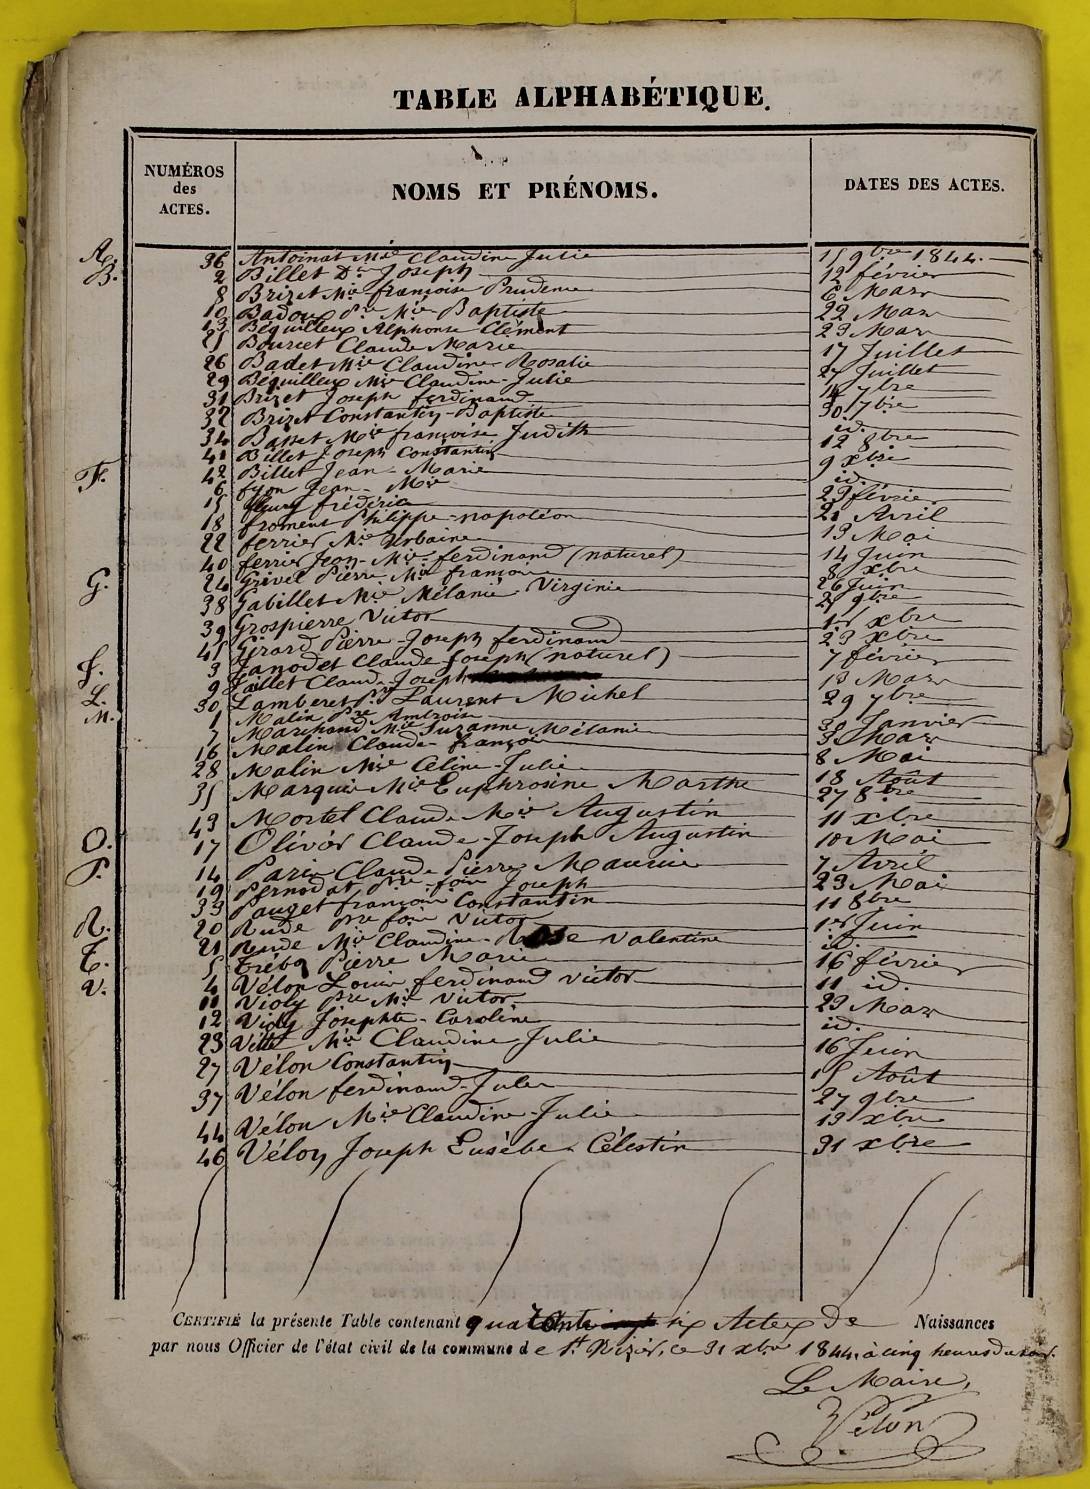 TABLE ALPHABÉTIQUE.
NUMÉROS des ACTES.
NOMS ET PRÉNOMS.
DATES DES ACTES.
A. 36 Antoinat Mie Claudine Julie 15 9bre 1844.
B. 2 Billet Joseph 12 février
8 Brizet Mie françoise Prudence 6 Mars
10 Badoux Pre Mie Baptiste 22 Mars
13 Béquilleux Alphonse Clément 23 Mars
25 Bourcet Claude Marie 17 Juillet
26 Badet Mie Claudine Rosalie 27 Juillet
29 Béquilleux Mie Claudine Julie 7bre
31 Brizet Joseph ferdinand 30 7bre
32 Brizet Constantin Baptiste id.
34 Basset Mie françoise Judith 12 8bre
41 Billet Joseph Constantin 9 xbre
42 Billet Jean Marie id.
F. 6 fyon Jean Mie 23 février
15 fleury frédéric 21 Avril
18 froment Philippe napoléon 13 Mai
22 ferrier Mie Urbaine 14 Juin
40 ferrier Jean Mie ferdinand (naturel) 8 xbre
G. 24 Grivel Pierre Mie françois 26 Juin
38 Gabillet Mie Mélanie Virginie 9bre
39 Grospierre Victor 1er xbre
45 Girard Pierre Joseph ferdinand 23 xbre
J. 3 Janodet Claude Joseph (naturel) 7 février
9 Jaillet Claude Joseph 13 Mars
L. 30 Lamberet Laurent Michel 29 7bre
M. 1 Malin Pre Ambroise 30 Janvier
7 Marichand Mie Suzanne Mélanie 3 Mars
16 Malin Claude françois 8 Mai
28 Malin Mie Céline Julie 18 Août
35 Marquis Mie Euphrosine Marthe 27 8bre
43 Mortel Claude Mie Augustin 11 xbre
O. 17 Olivier Claude Joseph Augustin 10 Mai
P. 14 Parin Claude Pierre Maurice 7 Avril
19 Pernodat Pre fois Joseph 23 Mai
33 Pauget françois Constantin 11 8bre
R. 20 Rude Pre fois Victor 1er Juin
21 Rude Mie Claudine Rose Valentine id.
T. 5 Tréboz Pierre Marie 16 février
V. 4 Vélon Louis ferdinand victor 11 id.
11 Violy Pre Mie Victor 23 Mars
12 Violy Josephte Caroline id.
23 Villet Mie Claudine Julie 16 Juin
27 Vélon Constantin 15 Août
37 Vélon ferdinand Jules 27 9bre
44 Vélon Mie Claudine Julie 13 xbre
46 Vélon Joseph Eusèbe Célestin 31 xbre
CERTIFIÉ la présente Table contenant quarante six Actes de Naissances
par nous Officier de l'état civil de la commune de St. Nizier, ce 31 xbre 1844, à cinq heures du soir.
Le Maire,
Vélon